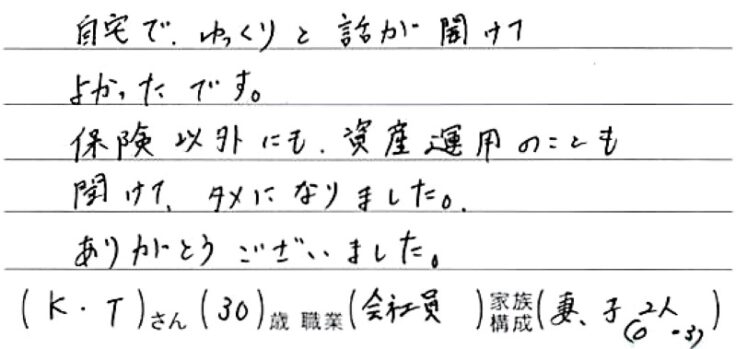 自宅で、ゆっくりと話が聞けて
よかったです。
保険以外にも、資産運用のことも
聞けて、タメになりました。
ありがとうございました。
(K・T)さん(30)歳 職業(会社員 )家族構成(妻、子2人(0・3))